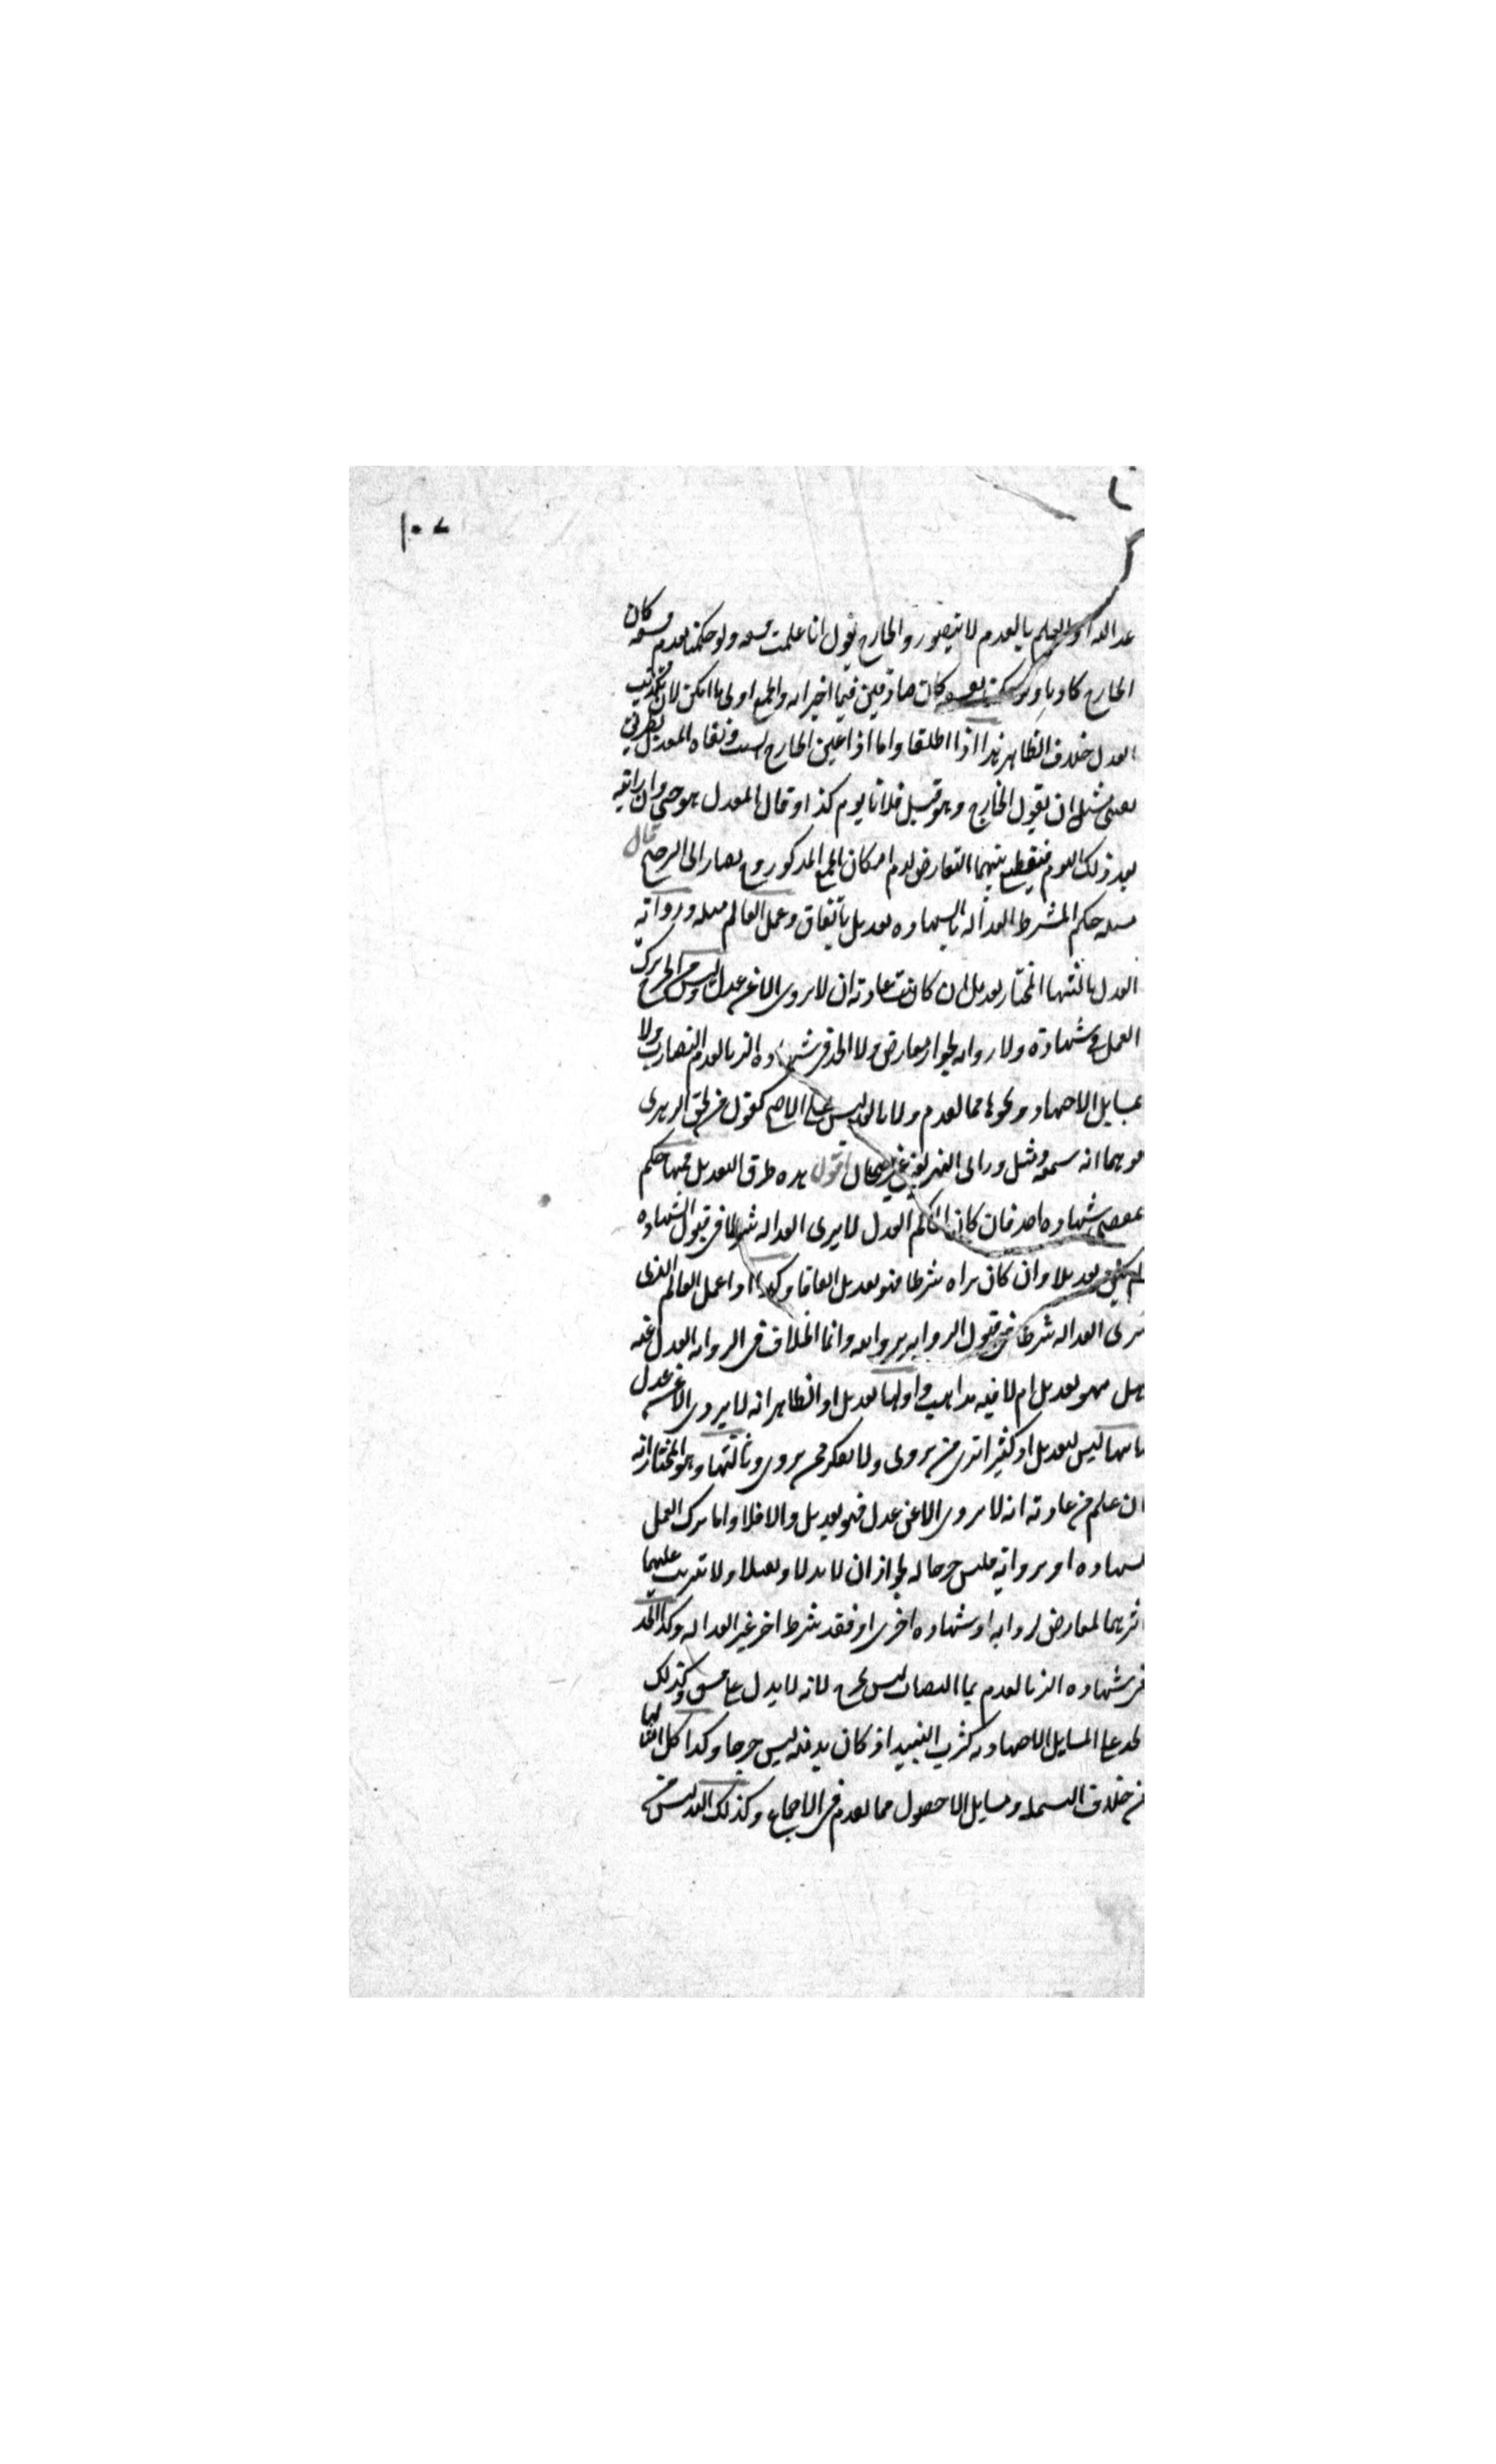 ١٠٧
عدالته اذ العلم بالعدم لا يتصور والجارح يقول انا علمت فسقه ولو حكمنا بعدم فسقه كان
الجارح كاذبا ولو كانا صادقين فيما اخبرا به والجمع اولى ما امكن لان تكذيب
العدل خلاف الظاهر هذا اذا اطلقا واما اذا عين الجارح السبب ونفاه المعدل بطريق
يقيني مثل ان يقول الجارح وهو قتل فلانا يوم كذا وقال المعدل هو حي وانا رايته
بعد ذلك اليوم فيقطع بينهما التعارض لعدم امكان الجمع المذكور وح يصار الى الترجيح قال
مسله حكم المشترط العدالة بالشهاده تعديل باتفاق وعمل العالم مثله ورواية
العدل ثالثها المختار تعديل ان كانت عادته ان لا يروى الا عن عدل وليس من الجرح ترك
العمل فى شهادة ولا رواية لجواز معارض ولا الحد فى شهاده الزنا لعدم النصاب ولا
بمسايل الاجتهاد ونحوها مما تقدم ولا بالتدليس على الاصح كقول من لحق الزهرى
موهما انه سمعه ومثل وراى النهر يعنى غير جيحان اقول هذه طرق التعديل فمنها حكم
بمقتضى شهاده احد فان كان الحاكم العدل لا يرى العداله شرطا فى قبول الشهاده
لم يكن تعديلا وان كان يراه شرطا فهو تعديل اتفاقا وكذا اذا عمل العالم الذى
يرى العداله شرطا فى قبول الروايه بروايته وانما الخلاف فى الروايه العدل عنه
هل هو تعديل ام لا فيه مذاهب اولها تعديل اذ الظاهر انه لا يروى الا عن عدل
ثانيها ليس بتعديل اذ كثيرا ترى من يروى ولا يفكر ممن يروى وثالثها وهو المختار انه
ان علم من عادته انه لا يروى الا عن عدل فهو تعديل والا فلا واما ترك العمل
بشهاده او بروايته فليس جرحا له لجواز ان لا يدلا ولا ترتب عليهما
اثرهما لمعارض رواية او شهاده اخرى او فقد شرط اخر غير العداله وكذا الحد
فى شهاده الزنا لعدم النصاب ليس بجرح لانه لا يدل على فسق وكذلك
الحد على المسايل الاجتهاديه كشرب النبيذ اذ كان يدينه ليس جرحا وكذا كل
من خلاف البسملة ومسايل الاصول مما تقدم فى الاجماع وكذلك التدليس من